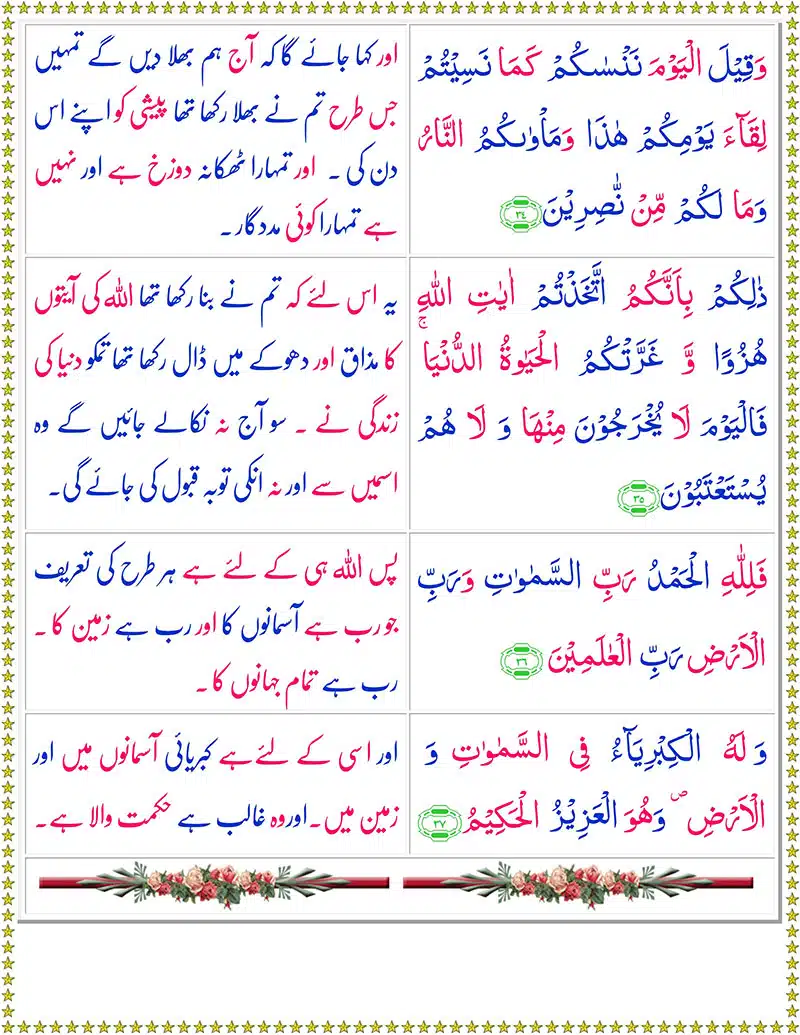 وَقِيۡلَ الۡيَوۡمَ نَنۡسٰٮكُمۡ كَمَا نَسِيۡتُمۡ
لِقَآءَ يَوۡمِكُمۡ هٰذَا وَمَاۡوٰٮكُمُ النَّارُ
وَمَا لَكُمۡ مِّنۡ نّٰصِرِيۡنَ ﴿۳۴﴾
اور کہا جائے گا کہ آج ہم بھلا دیں گے تمہیں
جس طرح تم نے بھلا رکھا تھا پیشی کو اپنے اس
دن کی ۔ اور تمہارا ٹھکانہ دوزخ ہے اور نہیں
ہے تمہارا کوئی مددگار ۔
ذٰلِكُمۡ بِاَنَّكُمُ اتَّخَذۡتُمۡ اٰيٰتِ اللّٰهِ
هُزُوًا وَّ غَرَّتۡكُمُ الۡحَيٰوةُ الدُّنۡيَا ۚ
فَالۡيَوۡمَ لَا يُخۡرَجُوۡنَ مِنۡهَا وَ لَا هُمۡ
يُسۡتَعۡتَبُوۡنَ ﴿۳۵﴾
یہ اس لئے کہ تم نے بنا رکھا تھا اللہ کی آیتوں
کا مذاق اور دھوکے میں ڈال رکھا تھا تمکو دنیا کی
زندگی نے ۔ سو آج نہ نکالے جائیں گے وہ
اسمیں سے اور نہ انکی توبہ قبول کی جائے گی۔
فَلِلّٰهِ الۡحَمۡدُ رَبِّ السَّمٰوٰتِ وَرَبِّ
الۡاَرۡضِ رَبِّ الۡعٰلَمِيۡنَ ﴿۳۶﴾
پس اللہ ہی کے لئے ہے ہر طرح کی تعریف
جو رب ہے آسمانوں کا اور رب ہے زمین کا ۔
رب ہے تمام جہانوں کا ۔
وَ لَهُ الۡكِبۡرِيَآءُ فِى السَّمٰوٰتِ وَ
الۡاَرۡضِ ۖ وَهُوَ الۡعَزِيۡزُ الۡحَكِيۡمُ ﴿۳۷﴾
اور اسی کے لئے ہے کبریائی آسمانوں میں اور
زمین میں۔ اور وہ غالب ہے حکمت والا ہے۔